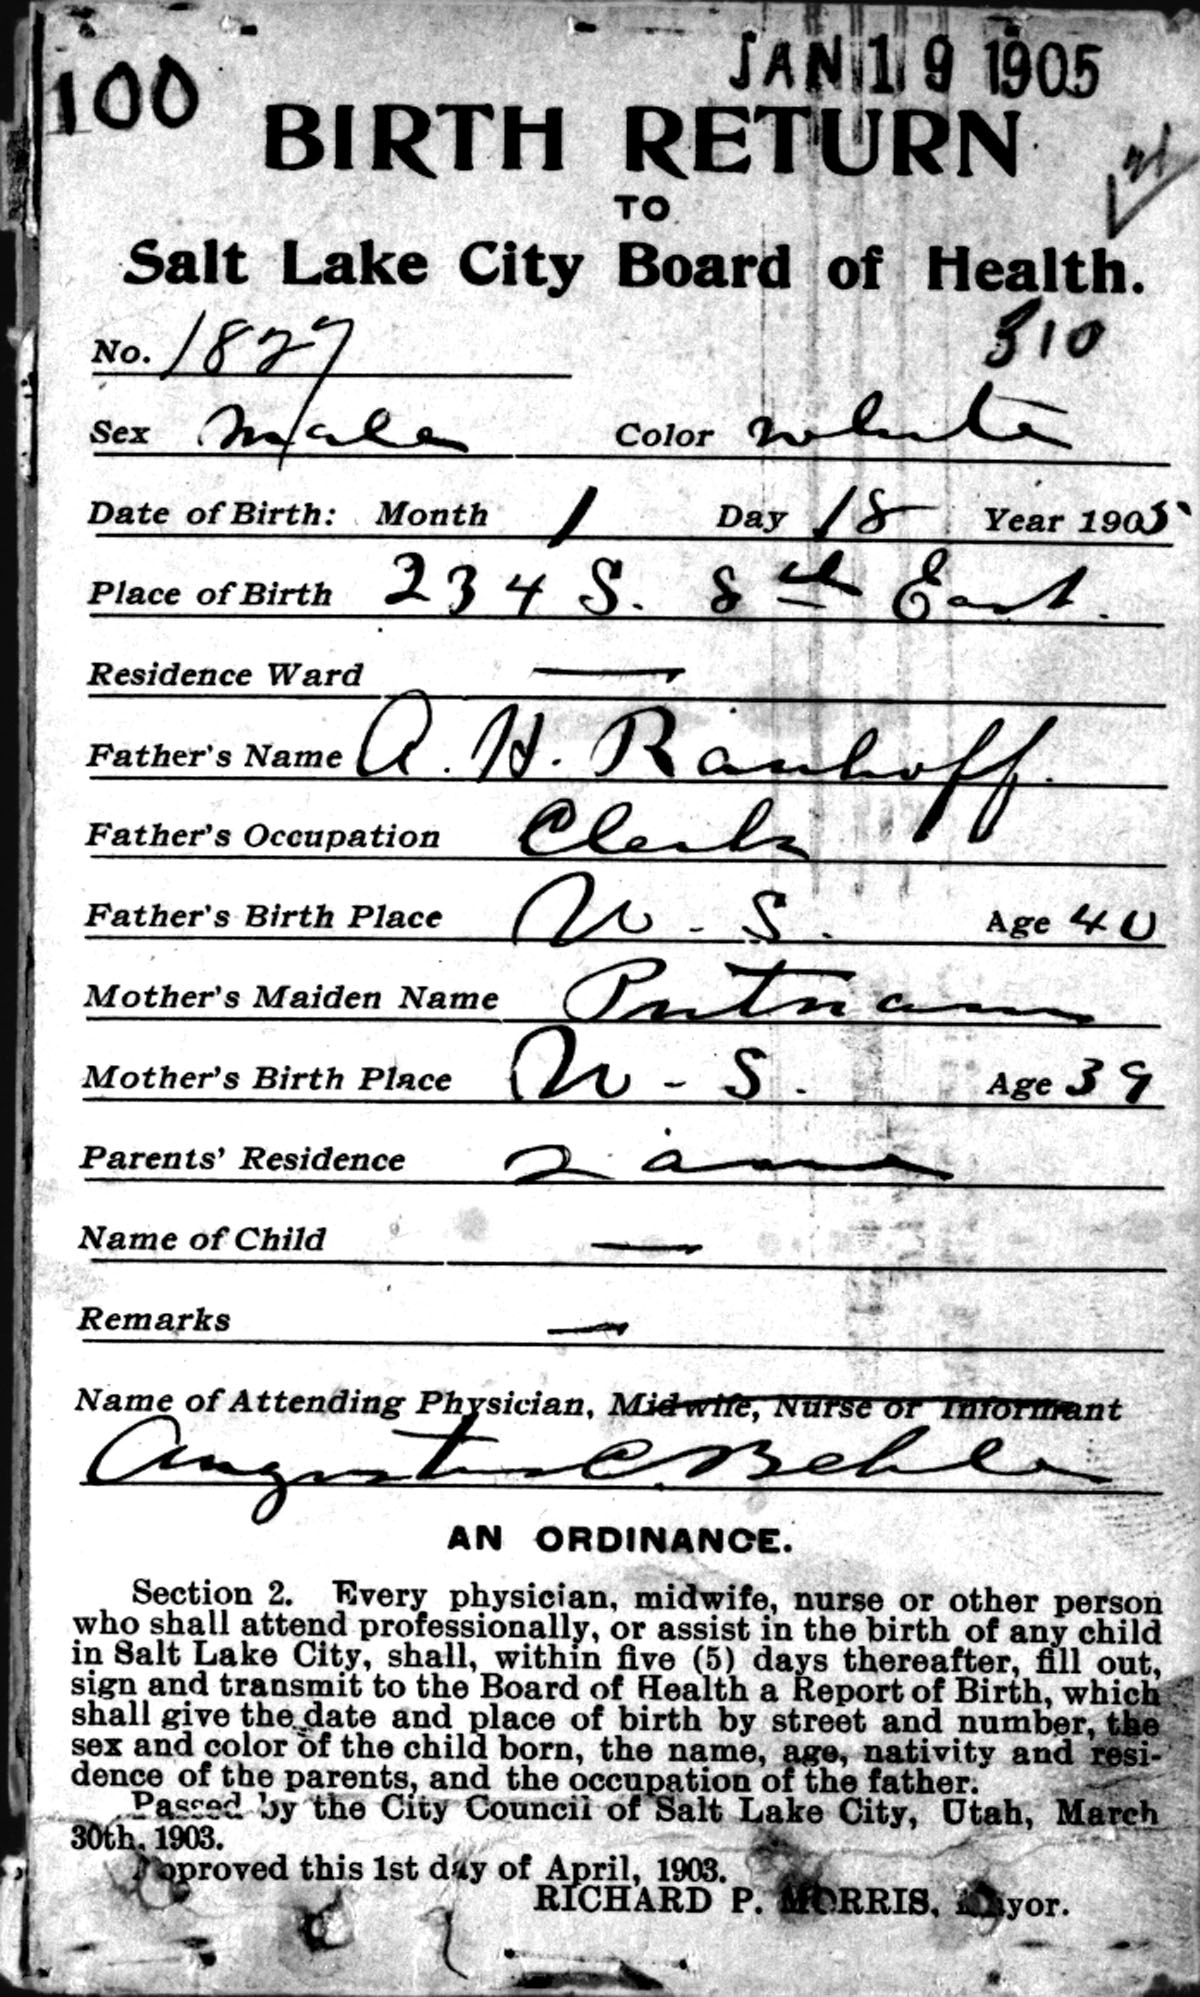 JAN 19 1905
100
BIRTH RETURN
TO
Salt Lake City Board of Health.
310
No. 1827
Sex Male Color White
Date of Birth: Month 1 Day 18 Year 1905
Place of Birth 234 S. 8th East.
Residence Ward —
Father's Name A. H. Ranhoff.
Father's Occupation Clerk
Father's Birth Place U.S. Age 40
Mother's Maiden Name Putnam
Mother's Birth Place U.S. Age 39
Parents' Residence Same
Name of Child —
Remarks —
Name of Attending Physician, Midwife, Nurse or Informant
Augustus C. Behle
AN ORDINANCE.
Section 2. Every physician, midwife, nurse or other person
who shall attend professionally, or assist in the birth of any child
in Salt Lake City, shall, within five (5) days thereafter, fill out,
sign and transmit to the Board of Health a Report of Birth, which
shall give the date and place of birth by street and number, the
sex and color of the child born, the name, age, nativity and resi-
dence of the parents, and the occupation of the father.
Passed by the City Council of Salt Lake City, Utah, March
30th, 1903.
Approved this 1st day of April, 1903.
RICHARD P. MORRIS, Mayor.